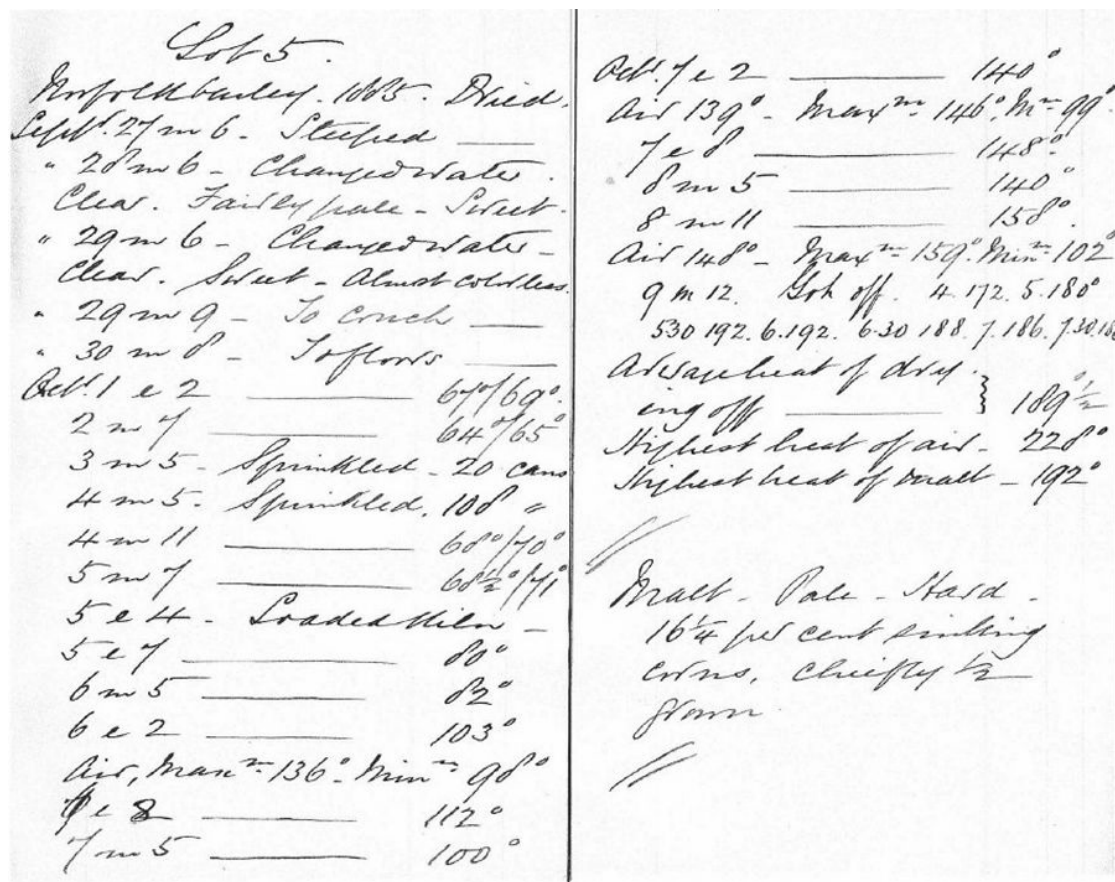 Lot 5.
Norfolk barley. 1885. Dried.
Septr. 27 m 6 - Steeped ——
" 28 m 6 - Changed water.
Clear. Fairly pale - Sweet.
" 29 m 6 - Changed water -
Clear. Sweet - Almost colorless.
" 29 m 9 - To couch ——
" 30 m 8 - To floors ——
Octr. 1 e 2 —— 67°/69°.
2 m 7 —— 64°/65°
3 m 5 - Sprinkled - 20 cans
4 m 5 - Sprinkled. 108 "
4 m 11 —— 68°/70°
5 m 7 —— 68½°/71°
5 e 4 - Loaded Kiln -
5 e 7 —— 80°
6 m 5 —— 82°
6 e 2 —— 103°
Air, Maxm 136°. Minm 98°
e 8 —— 112°
7 m 5 —— 100°
Octr. 7 e 2 —— 140°
Air 139° - Maxm 146°. Mm 99°
7 e 8 —— 148°
8 m 5 —— 140°
8 m 11 —— 158°.
Air 148° - Maxm 159°. Minm 102°
9 m 12. Got off. 4. 172. 5. 180°
530 192. 6. 192. 6.30 188. 7. 186. 7.30.
Average heat of dry-
ing off —— } 189°½
Highest heat of air - 228°
Highest heat of malt - 192°
Malt - Pale - Hard -
16¼ per cent sinking
corns, chiefly ½
grown